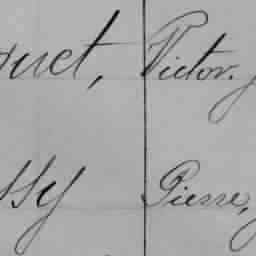 quet, Victor.
ssy Pierre,